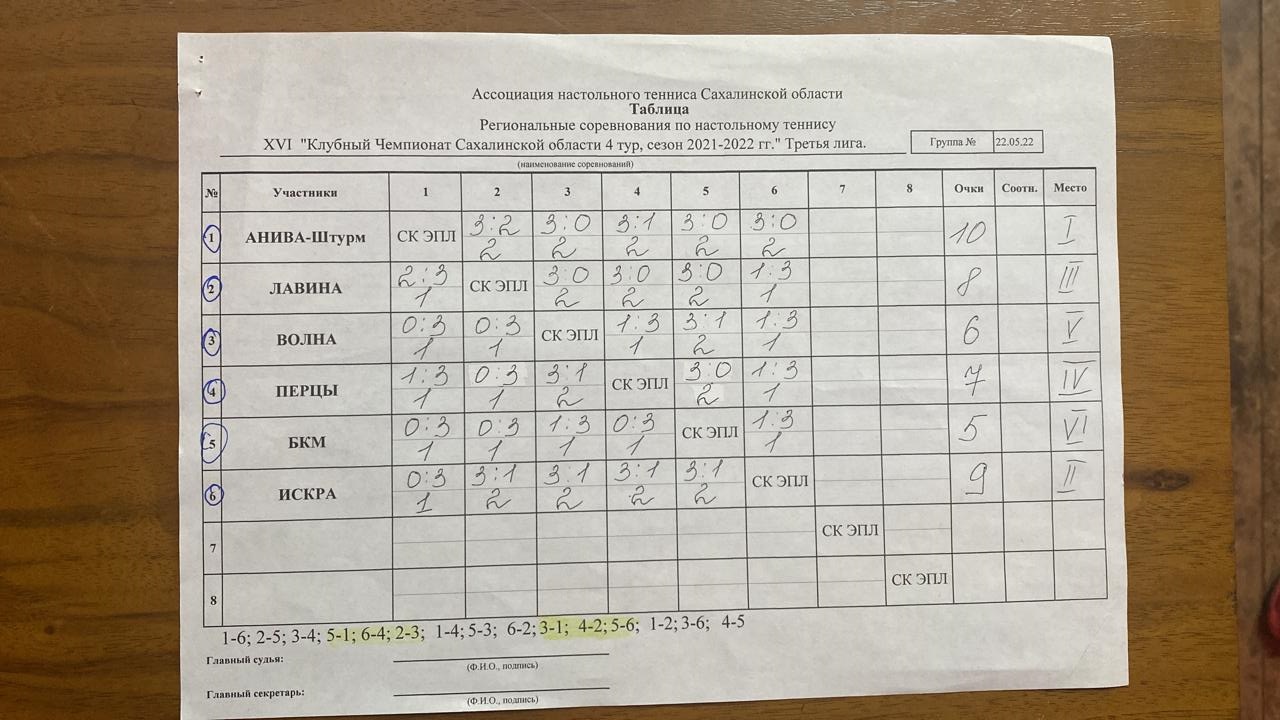 Ассоциация настольного тенниса Сахалинской области
Таблица
Региональные соревнования по настольному теннису
XVI "Клубный Чемпионат Сахалинской области 4 тур, сезон 2021-2022 гг." Третья лига. Группа № 22.05.22
(наименование соревнований)
№ Участники 1 2 3 4 5 6 7 8 Очки Соотн. Место
1 АНИВА-Штурм СК ЭПЛ 3:2 3:0 3:1 3:0 3:0 10 I
2 2 2 2 2
2 ЛАВИНА 2:3 СК ЭПЛ 3:0 3:0 3:0 1:3 8 III
1 2 2 2 1
3 ВОЛНА 0:3 0:3 СК ЭПЛ 1:3 3:1 1:3 6 V
1 1 1 2 1
4 ПЕРЦЫ 1:3 0:3 3:1 СК ЭПЛ 3:0 1:3 7 IV
1 1 2 2 1
5 БКМ 0:3 0:3 1:3 0:3 СК ЭПЛ 1:3 5 VI
1 1 1 1 1
6 ИСКРА 0:3 3:1 3:1 3:1 3:1 СК ЭПЛ 9 II
1 2 2 2 2
7 СК ЭПЛ
8 СК ЭПЛ
1-6; 2-5; 3-4; 5-1; 6-4; 2-3; 1-4; 5-3; 6-2; 3-1; 4-2; 5-6; 1-2; 3-6; 4-5
Главный судья:
(Ф.И.О., подпись)
Главный секретарь:
(Ф.И.О., подпись)